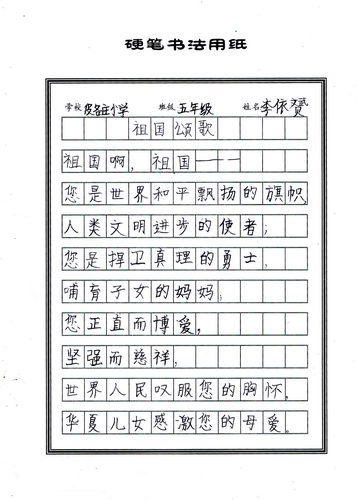 硬笔书法用纸
学校 皮各庄小学 班级 五年级 姓名 李依赟
祖国颂歌
祖国啊，祖国——
您是世界和平飘扬的旗帜
人类文明进步的使者；
您是捍卫真理的勇士，
哺育子女的妈妈；
您正直而博爱，
坚强而慈祥，
世界人民叹服您的胸怀。
华夏儿女感激您的母爱。